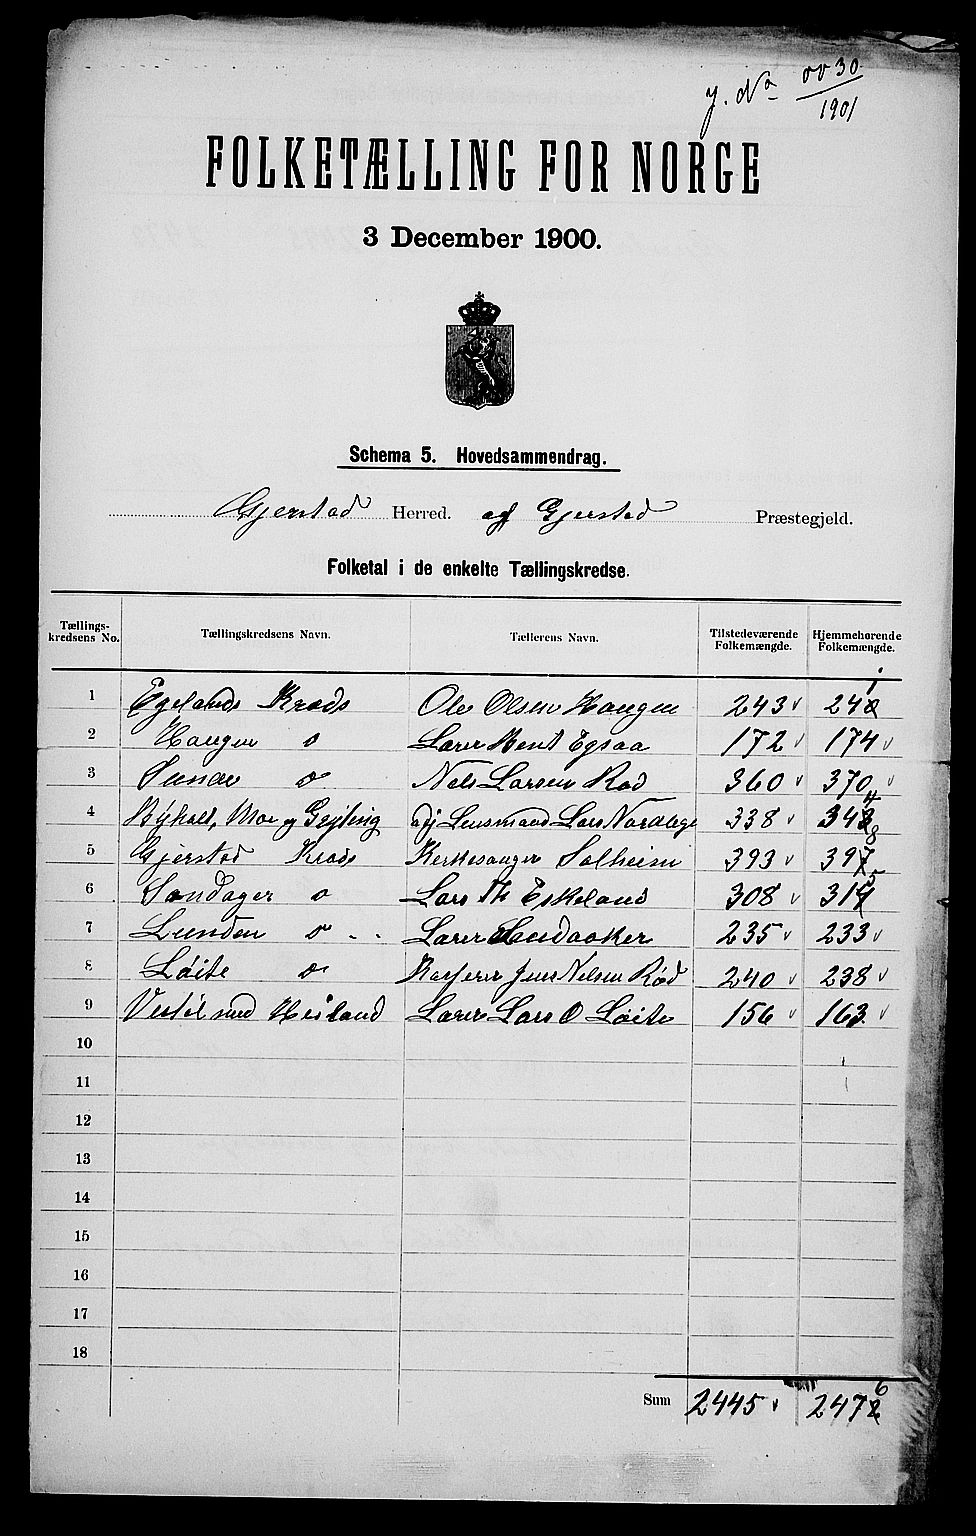 J. No 0030
1901
FOLKETÆLLING FOR NORGE
3 December 1900.
Schema 5. Hovedsammendrag.
Gjerstad Herred. af Gjerstad Præstegjeld.
Folketal i de enkelte Tællingskredse.
Tællingskredsens No. Tællingskredsens Navn. Tællerens Navn. Tilstedeværende Folkemængde. Hjemmehørende Folkemængde.
1 Egelands Kreds Ole Olsen Haugen 243 241
2 Haugen o Lærer Bent Egsaa 172 174
3 Sunde o Nels Larsen Rød 360 370
4 Moe og Lensmand Lars 338 344
5 Gjerstad Kreds Kirkesanger Solheim 393 398
6 Søndager o Lars Th Eskeland 308 315
7 Lunden o Lærer 235 233
8 Løite o Kasserer Jens Nelsen Rød 240 238
9 Vestøl med Heiland Lærer Lars O Løite 156 163
10
11
12
13
14
15
16
17
18
Sum 2445 2476